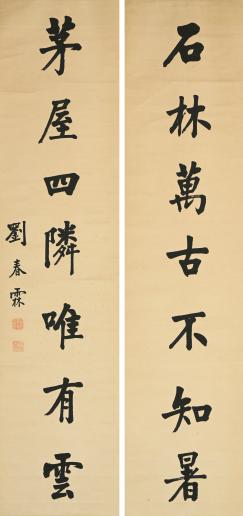 石林萬古不知暑
茅屋四隣唯有雲
劉春霖